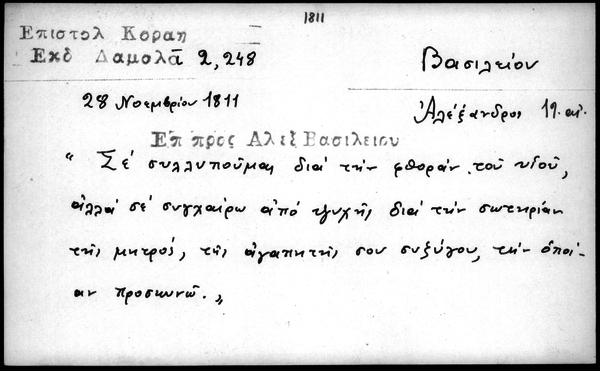 1811
Επιστολ Κοραη
Εκδ Δαμαλᾶ 2, 248
Βασιλείου
28 Νοεμβρίου 1811
Ἀλέξανδρος 19. αἰ.
Επ προς Αλεξ Βασιλειου
" Σέ συλλυποῦμαι διά τήν φθοράν τοῦ υἱοῦ,
ἀλλά σέ συγχαίρω ἀπό ψυχῆς διά τήν σωτηρίαν
τῆς μητρός, τῆς ἀγαπητῆς σου συζύγου, τήν ὁποί-
αν προσκυνῶ. "